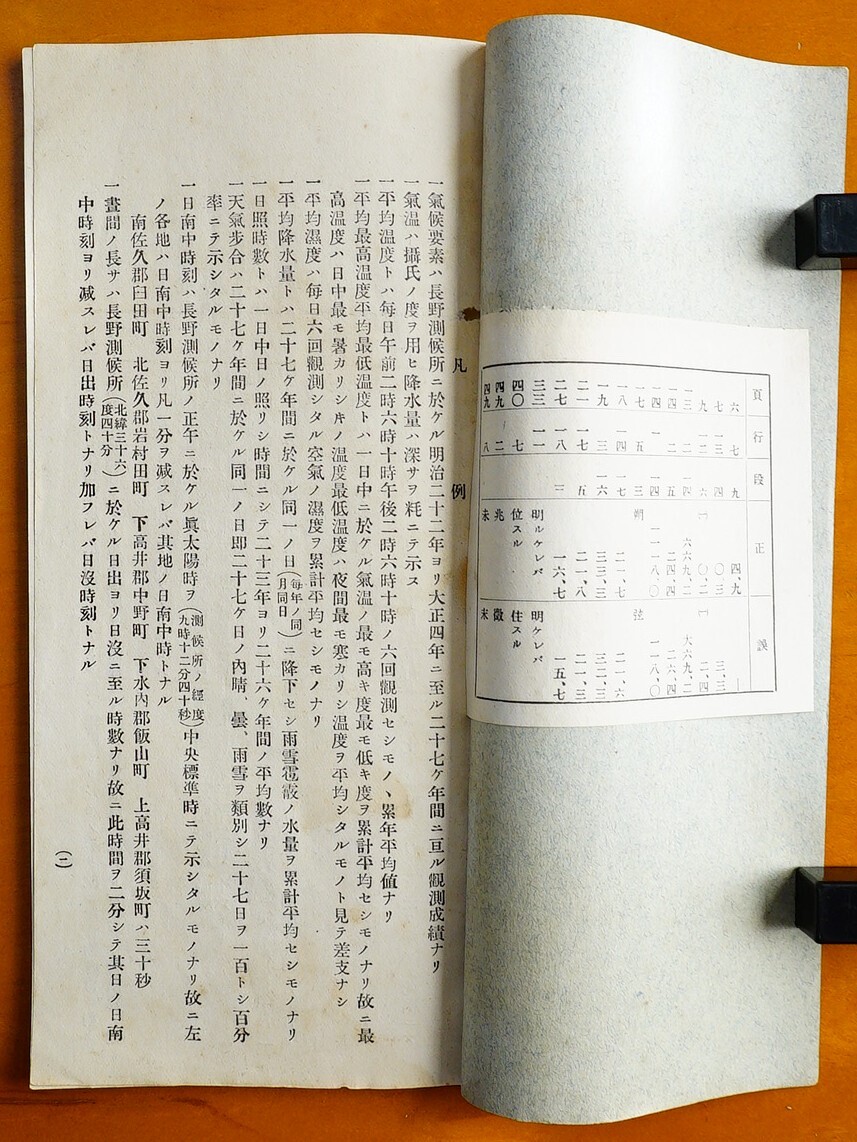 頁 行 段 正 誤
六 七 九 四、九
一七 五 三 朔 弦
一八 一四 一七 二一、七 二一、六
二七 一八 三 一六、七 一五、七
三三 一一 明ルケレバ 明ケレバ
四〇 七 位スル 住スル
四九 二 兆 微
四九 八 未 末
凡例
一氣候要素ハ長野測候所ニ於ケル明治二十二年ヨリ大正四年ニ至ル二十七ケ年間ニ亘ル觀測成績ナリ
一氣温ハ攝氏ノ度ヲ用ヒ降水量ハ深サヲ粍ニテ示ス
一平均温度トハ毎日午前二時六時十時午後二時六時十時ノ六回觀測セシモノヽ累年平均値ナリ
一平均最高温度平均最低温度トハ一日中ニ於ケル氣温ノ最モ高キ度最モ低キ度ヲ累計平均セシモノナリ故ニ最
高温度ハ日中最モ暑カリシキノ温度最低温度ハ夜間最モ寒カリシ温度ヲ平均シタルモノト見テ差支ナシ
一平均濕度ハ毎日六回觀測シタル空氣ノ濕度ヲ累計平均セシモノナリ
一平均降水量トハ二十七ケ年間ニ於ケル同一ノ日(毎年ノ同月同日)ニ降下セシ雨雪雹霰ノ水量ヲ累計平均セシモノナリ
一日照時數トハ一日中日ノ照リシ時間ニシテ二十三年ヨリ二十六ケ年間ノ平均數ナリ
一天氣步合ハ二十七ケ年間ニ於ケル同一ノ日即二十七ケ日ノ內晴、曇、雨雪ヲ類別シ二十七日ヲ一百トシ百分
率ニテ示シタルモノナリ
一日南中時刻ハ長野測候所ノ正午ニ於ケル眞太陽時ヲ(測候所ノ經度九時十二分四十秒)中央標準時ニテ示シタルモノナリ故ニ左
ノ各地ハ日南中時刻ヨリ凡一分ヲ減スレバ其地ノ日南中時トナル
南佐久郡臼田町 北佐久郡岩村田町 下高井郡中野町 下水內郡飯山町 上高井郡須坂町ハ三十秒
一晝間ノ長サハ長野測候所(北緯三十六度四十分)ニ於ケル日出ヨリ日沒ニ至ル時數ナリ故ニ此時間ヲ二分シテ其日ノ日南
中時刻ヨリ減スレバ日出時刻トナリ加フレバ日沒時刻トナル
(一)